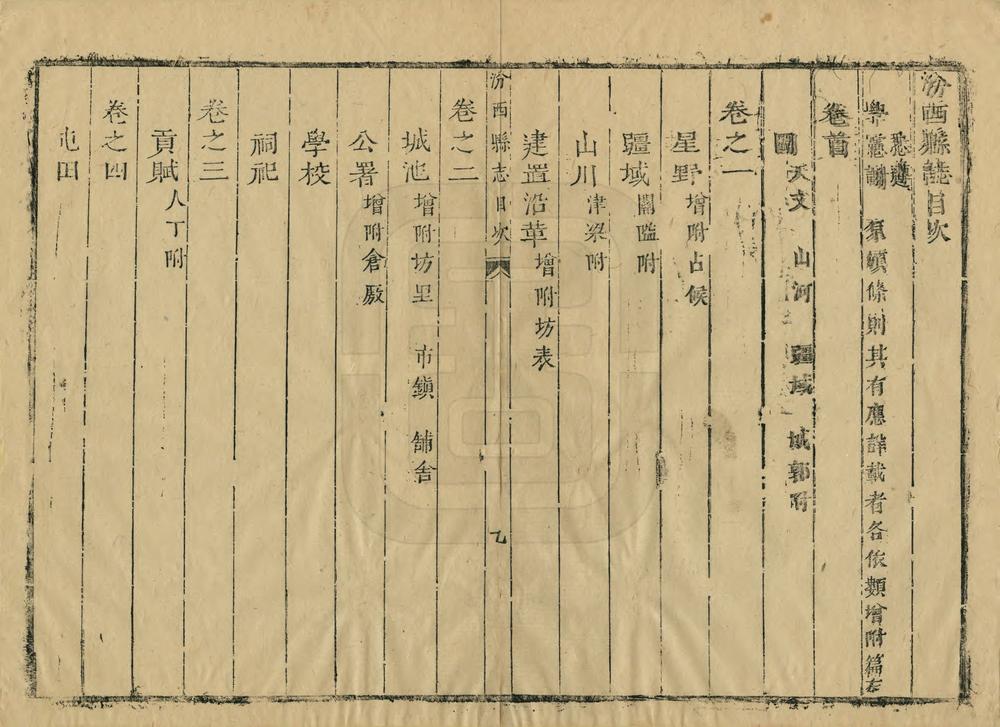 汾西縣誌目次
悉遵
學憲 纂 條則其有應詳載者各依類增附篇左
卷首
圖 天文 山河 疆域 城郭附
卷之一
星野 增附占候
疆域 關隘附
山川 津梁附
建置沿革 增附坊表
汾西縣志目次 乙
卷之二
城池 增附坊里 市鎮 舖舍
公署 增附倉廒
學校
祠祀
卷之三
貢賦 人丁附
卷之四
屯田